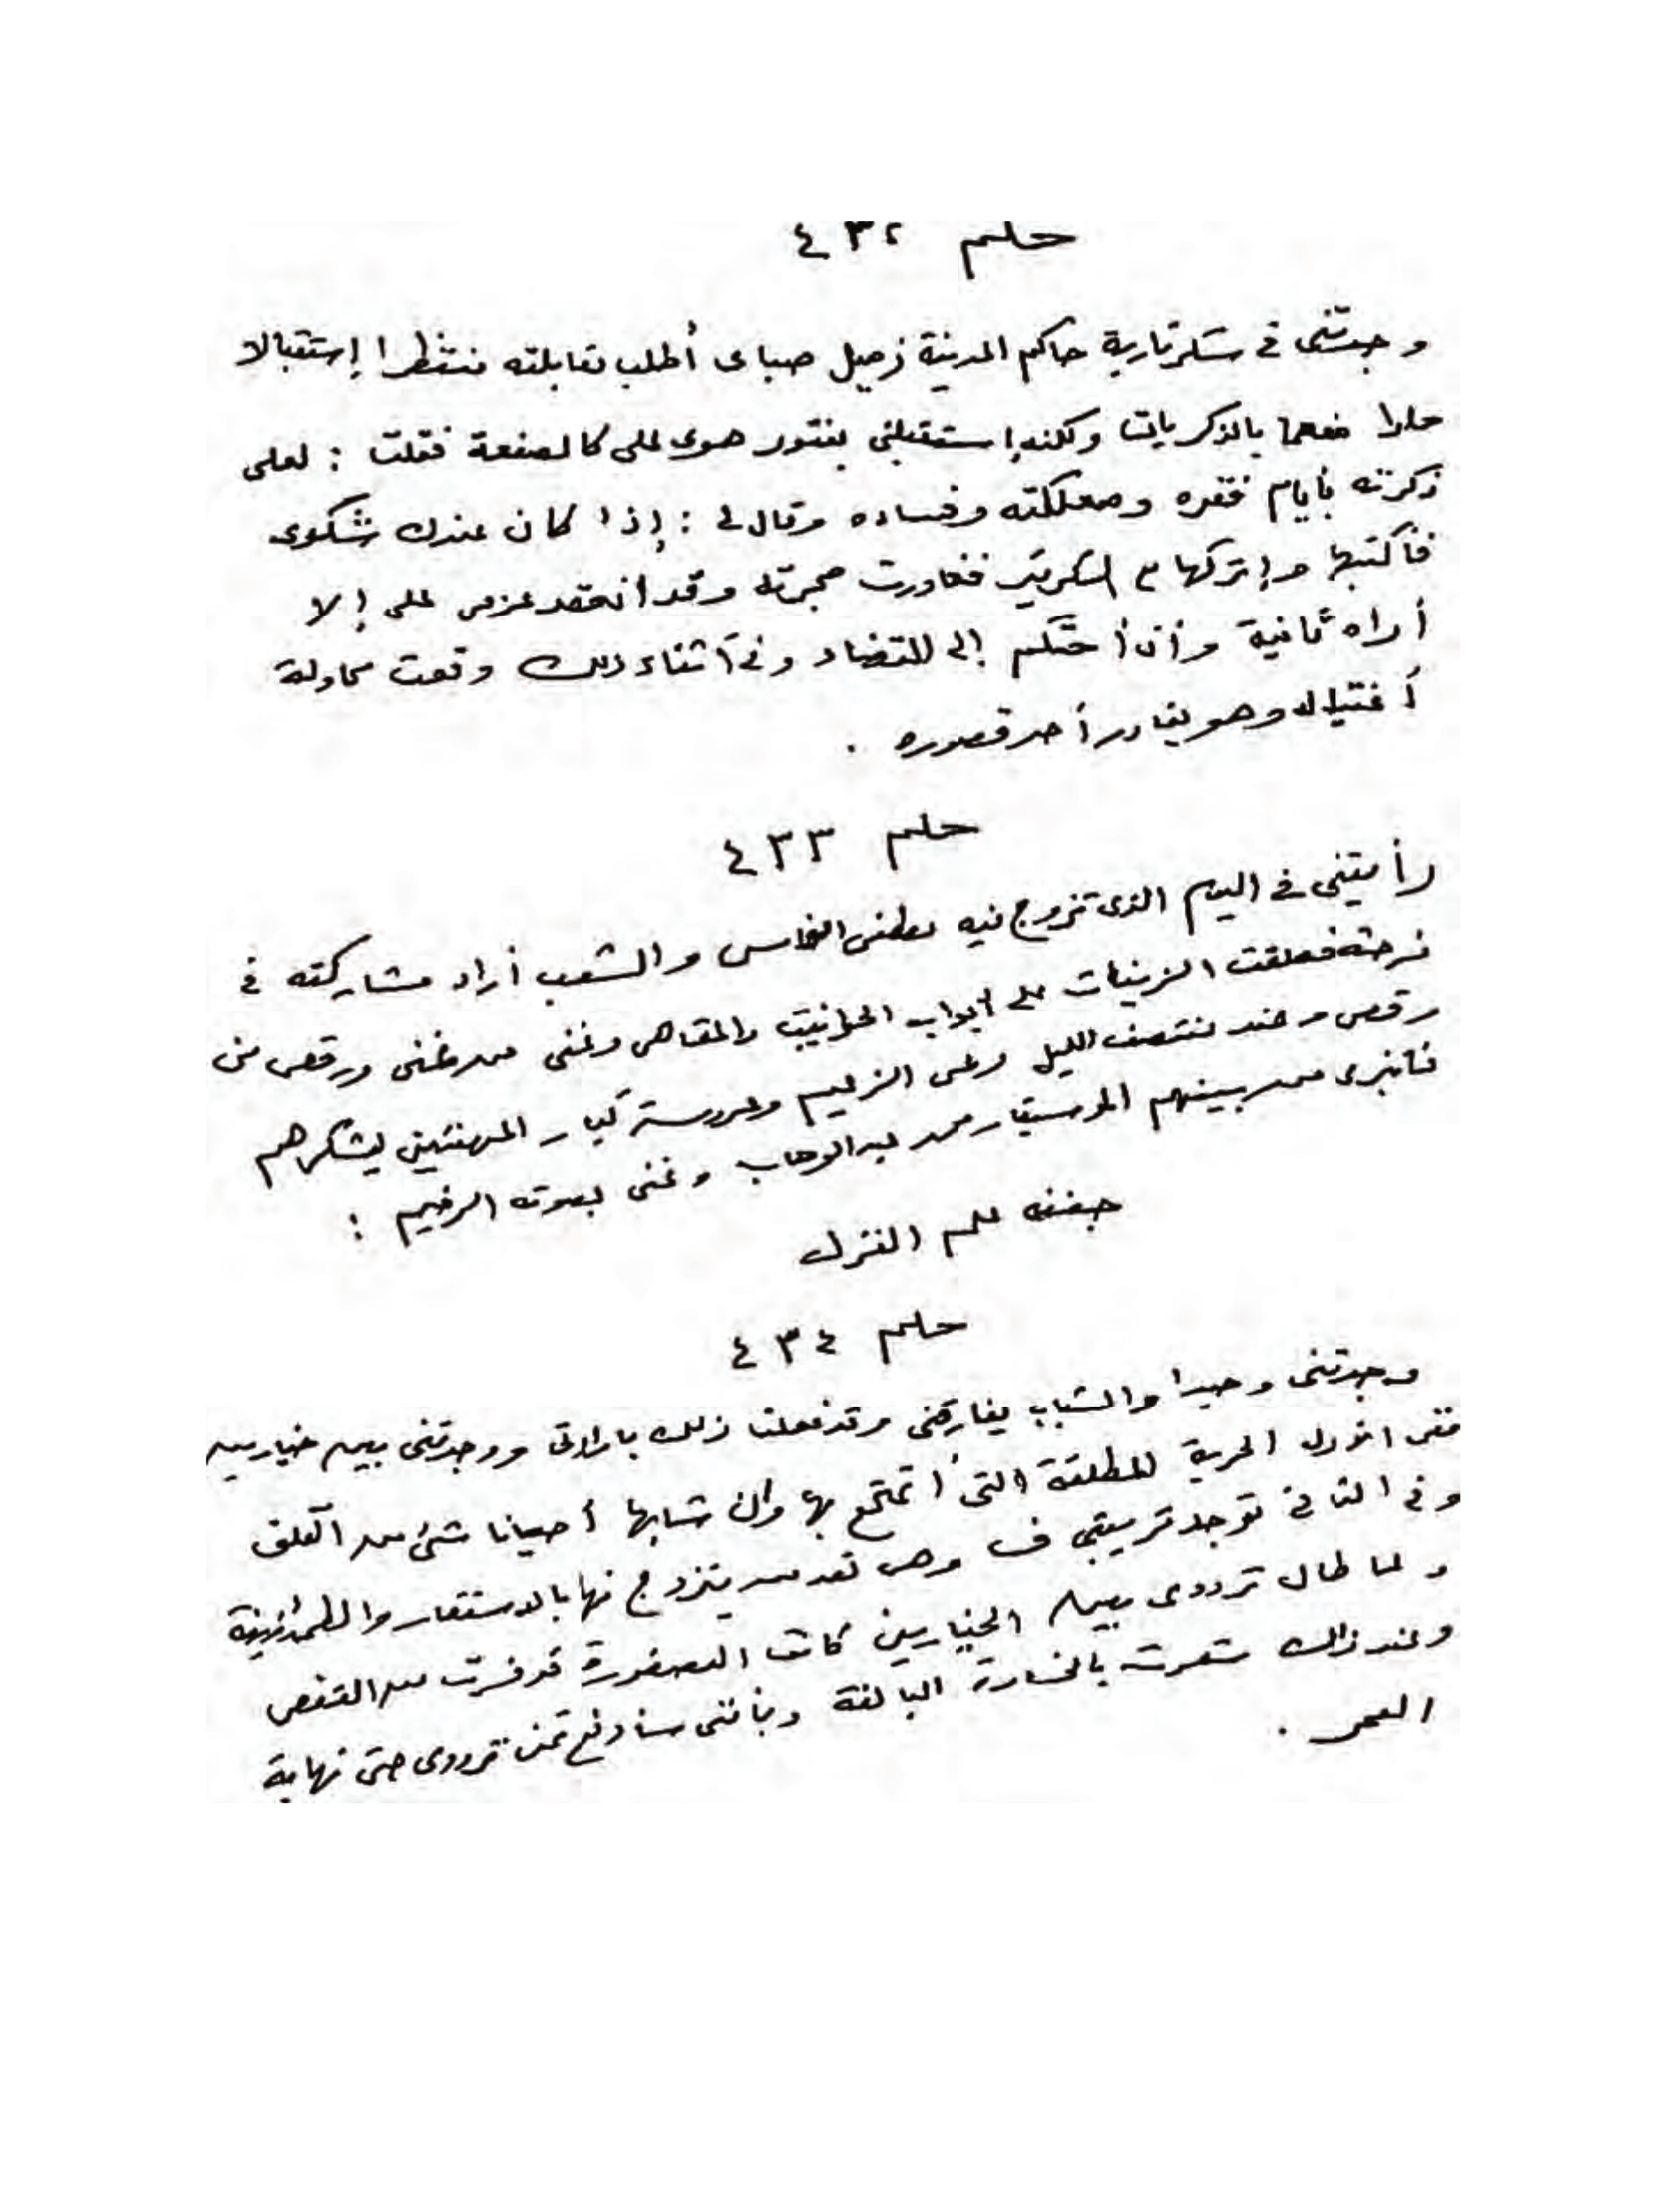 حلم ٤٣٢
وجدتنى فى سكرتارية حاكم المدينة زميل صباى أطلب مقابلته منتظرا إستقبالا
حارا مفعما بالذكريات ولكنه إستقبلنى بفتور هوى على كالصفعة فقلت : لعلى
ذكرته بأيام فقره وصعلكته وفساده وقال لى : إذا كان عندك شكوى
فأكتبها وإتركها مع السكرتير فغادرت حجرته وقد انعقد عزمى على إلا
أراه ثانية وأن أحتكم إلى القضاء وفى أثناء ذلك وقعت محاولة
أغتياله وهو يغادر أحد قصوره .
حلم ٤٣٣
رأيتنى فى اليوم الذى تزوج فيه مصطفى النحاس والشعب أراد مشاركته فى
فرحته فعلقت الزينات على أبواب الحوانيت والمقاهى وغنى من غنى ورقص من
رقص وعند منتصف الليل دعى الزعيم وعروسه كبار المهنئين ليشكرهم
فانبرى من بينهم الموسيقار محمد عبد الوهاب وغنى بصوته الرخيم :
جفنه علم الغزل
حلم ٤٣٤
وجدتنى وحيدا والشباب يفارقنى وقد فعلت ذلك بارادتى ووجدتنى بين خيارين
ففى الاول الحرية المطلقة التى أتمتع بها وان شابها أحيانا شئ من القلق
وفى الثانى توجد قريبتى ف وهى تعد من يتزوج منها بالاستقرار والطمأنينة
ولما طال ترددى بين الخيارين كانت العصفورة قد فرت من القفص
وعند ذلك شعرت بالخسارة البالغة وبأننى سأدفع ثمن ترددى حتى نهاية
العمر .